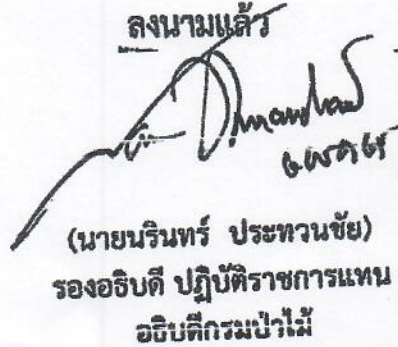 ลงนามแล้ว
(นายนรินทร์ ประทวนชัย)
รองอธิบดี ปฏิบัติราชการแทน
อธิบดีกรมป่าไม้